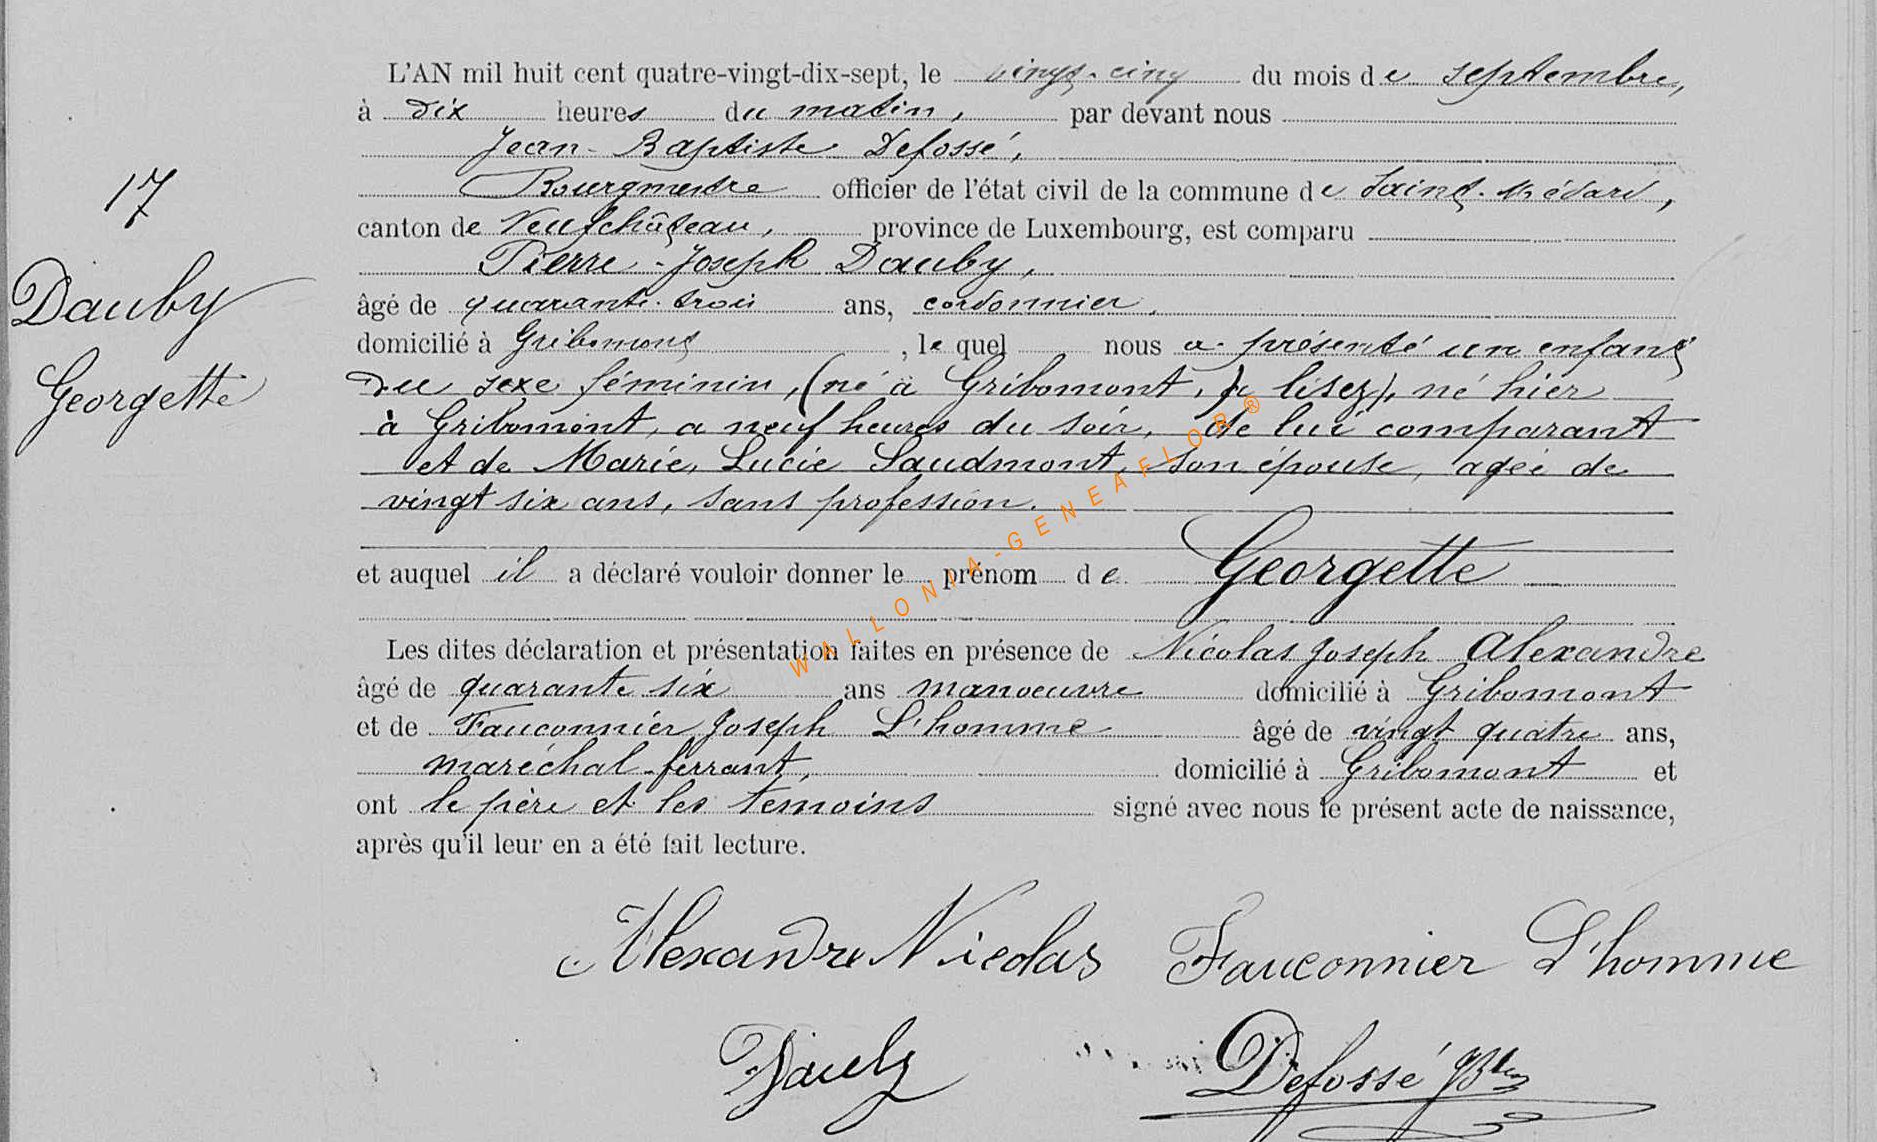 L'AN mil huit cent quatre-vingt-dix-sept, le vingt-cinq du mois de septembre,
à dix heures du matin, par devant nous
Jean-Baptiste Defossé,
Bourgmestre officier de l'état civil de la commune de Saint-Médard,
17
canton de Neufchâteau, province de Luxembourg, est comparu
Pierre-Joseph Dauby,
Dauby
âgé de quarante-trois ans, cordonnier,
domicilié à Gribomont, lequel nous a présenté un enfant
Georgette
du sexe féminin, (né à Gribomont, lisez), né hier
à Gribomont, a neuf heures du soir, de lui comparant
et de Marie, Lucie Saudmont, son épouse, agée de
vingt six ans, sans profession.
et auquel il a déclaré vouloir donner le prénom de Georgette
Les dites déclaration et présentation faites en présence de Nicolas Joseph Alexandre
âgé de quarante six ans manoeuvre domicilié à Gribomont
et de Fauconnier Joseph L'homme âgé de vingt quatre ans,
maréchal-ferrant, domicilié à Gribomont et
ont le père et les temoins signé avec nous le présent acte de naissance,
après qu'il leur en a été fait lecture.
WALLONIA-GENEAFLOR®
Alexandre Nicolas Fauconnier L'homme
Dauby Defossé